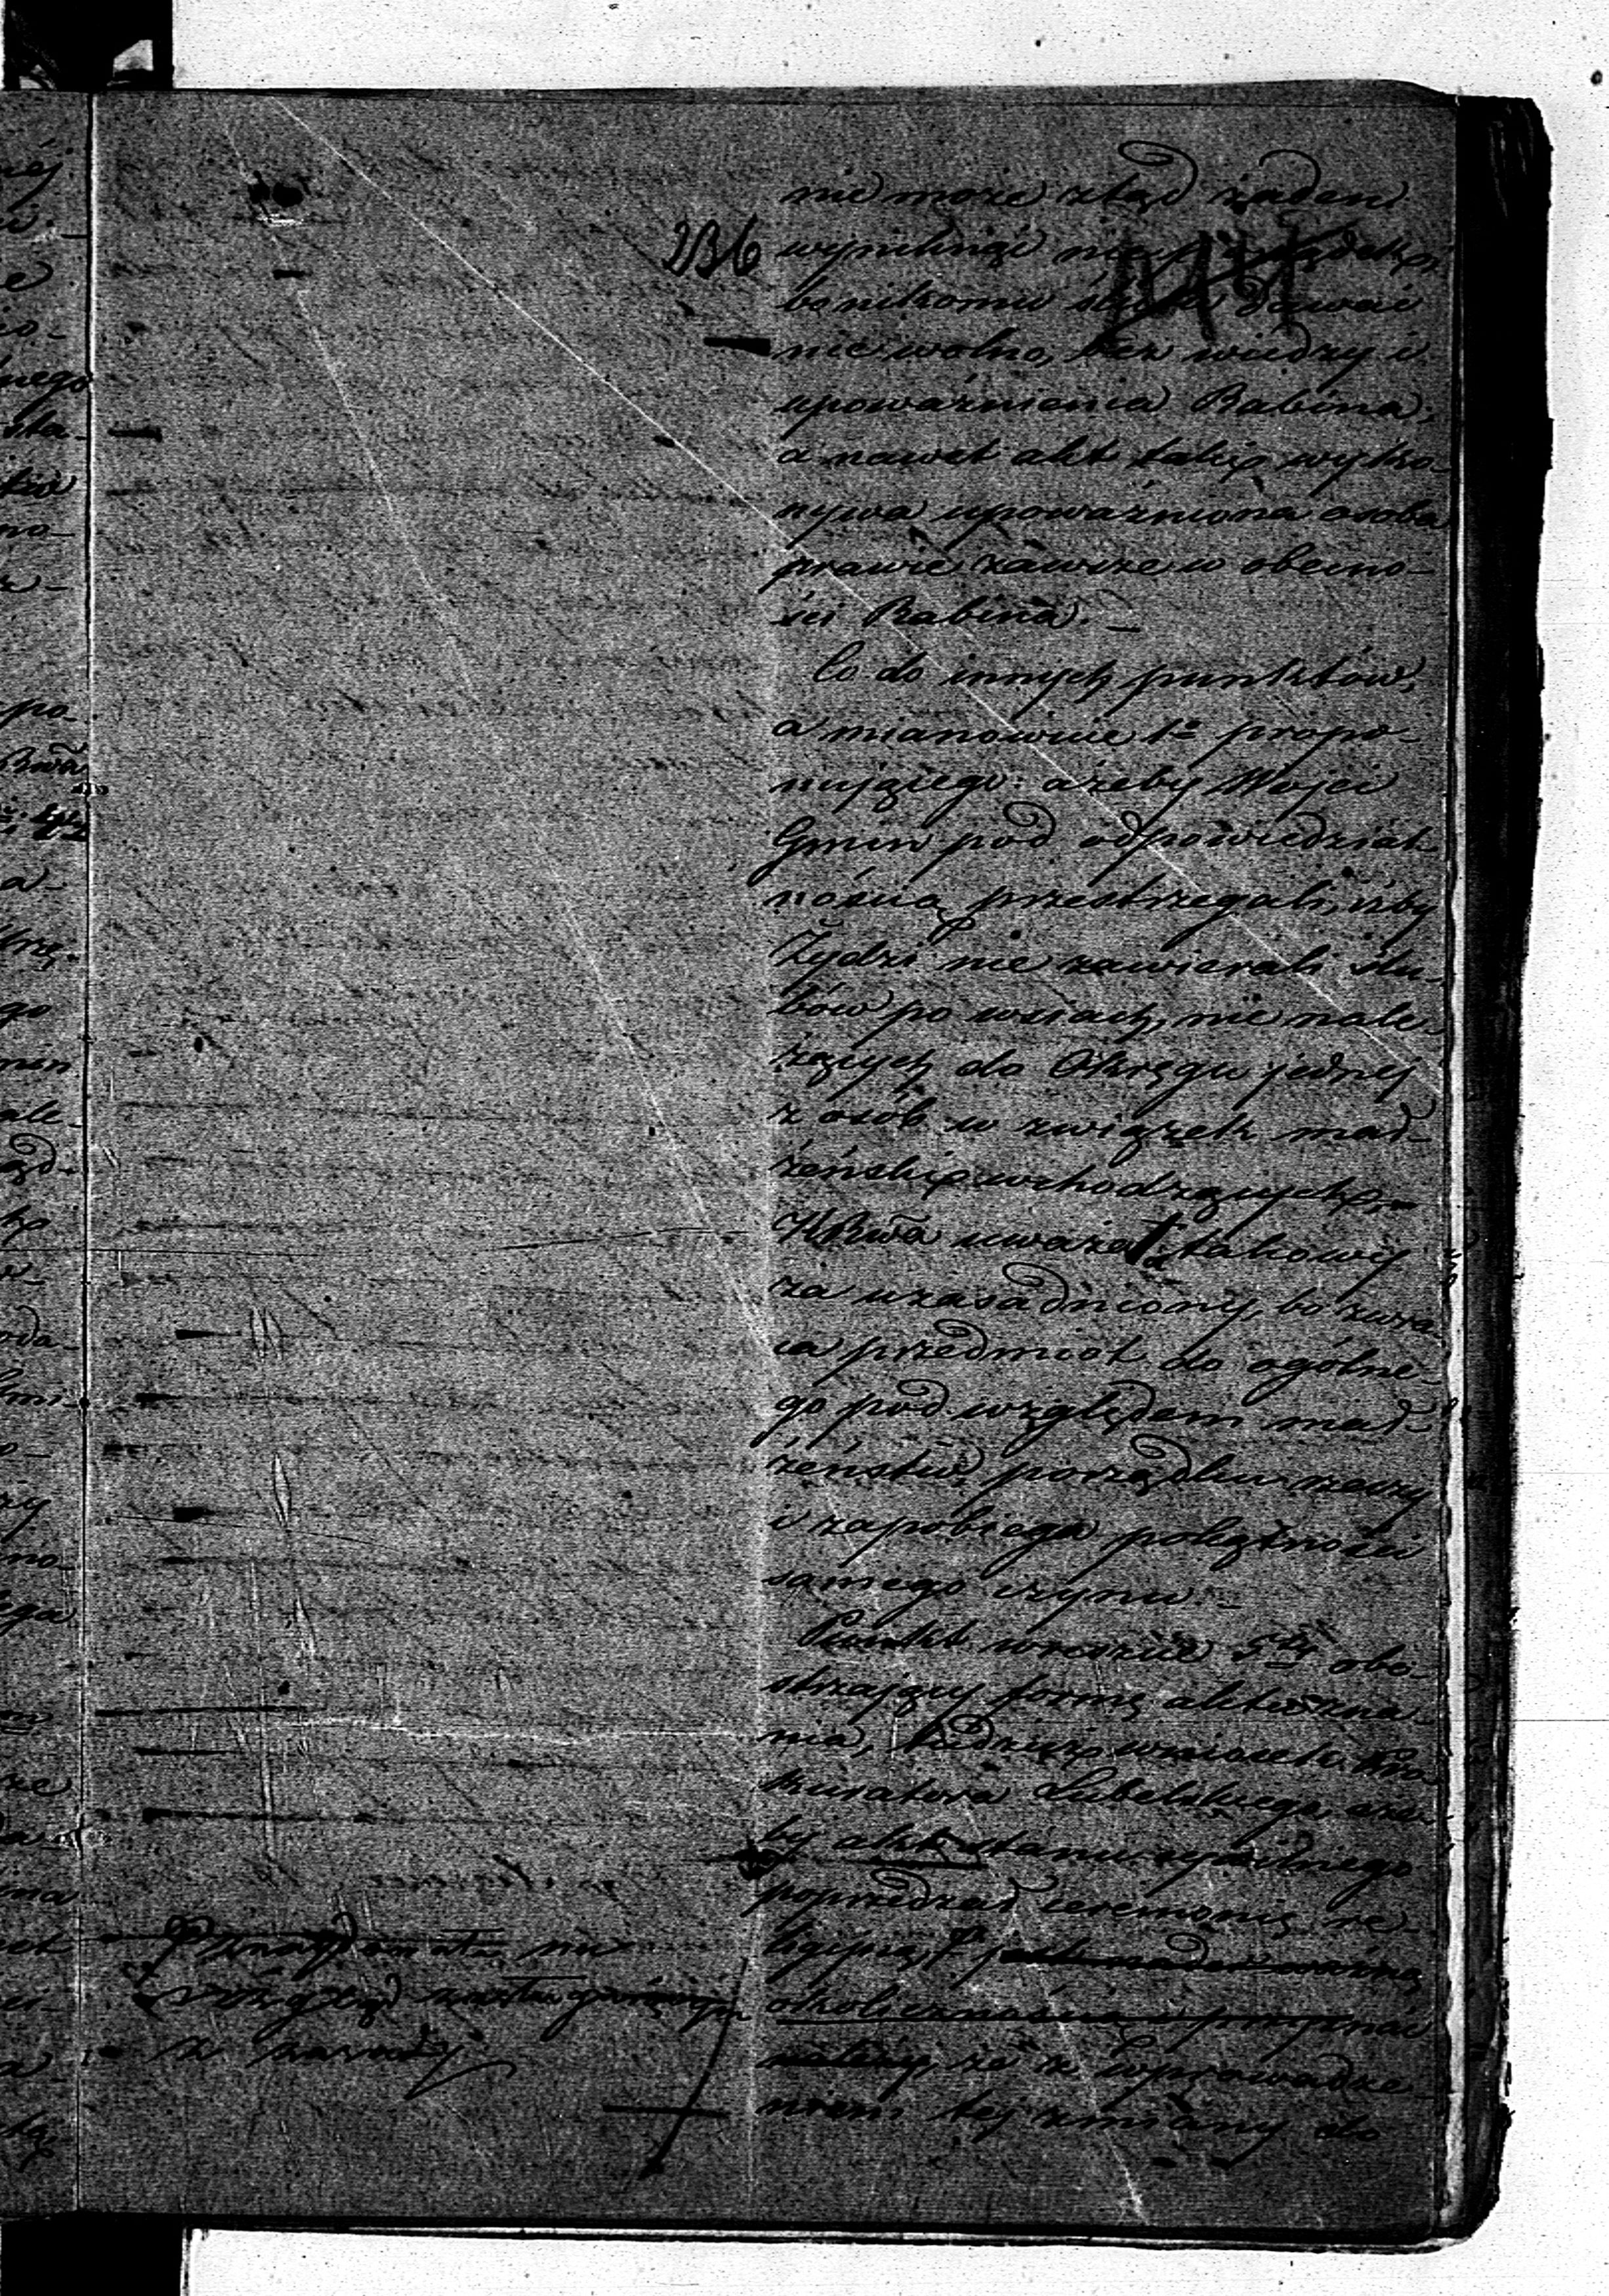 236
nie może ztąd żaden
wyniknąć nieporządek,
bo nikomu ślub dawać
nie wolno, bez wiedzy i
upoważnienia Rabina,
a nawet akt taki wyko-
nywa upoważniona osoba
prawie zawsze w obecno-
ści Rabina. –
Co do innych punktów,
a mianowicie 1º propo-
nującego: ażeby Wójci
Gmin pod odpowiedzial-
nością przestrzegali, iżby
Żydzi nie zawierali ślu-
bów po wsiach, nie nale-
żących do Okręgu jednej
z osób w związek mał-
żeński wchodzących, –
KRwa uważa takowy
za uzasadniony, bo zwra-
ca przedmiot do ogólne-
go pod względem mał-
żeństw porządku rzeczy
i zapobiega pokątności
samego czynu. –
Punkt wreszcie 5ty obo-
strzający formę aktów zna-
nia, tudzież wniosek Pro-
kuratora Lubelskiego, aże-
by akt stanu cywilnego
poprzedzał ceremonią re-
ligijną,
okolicznością i przyznać
należy, że z wprowadze-
niem tej zmiany do
na
wzgląd zasługującą
z zasady